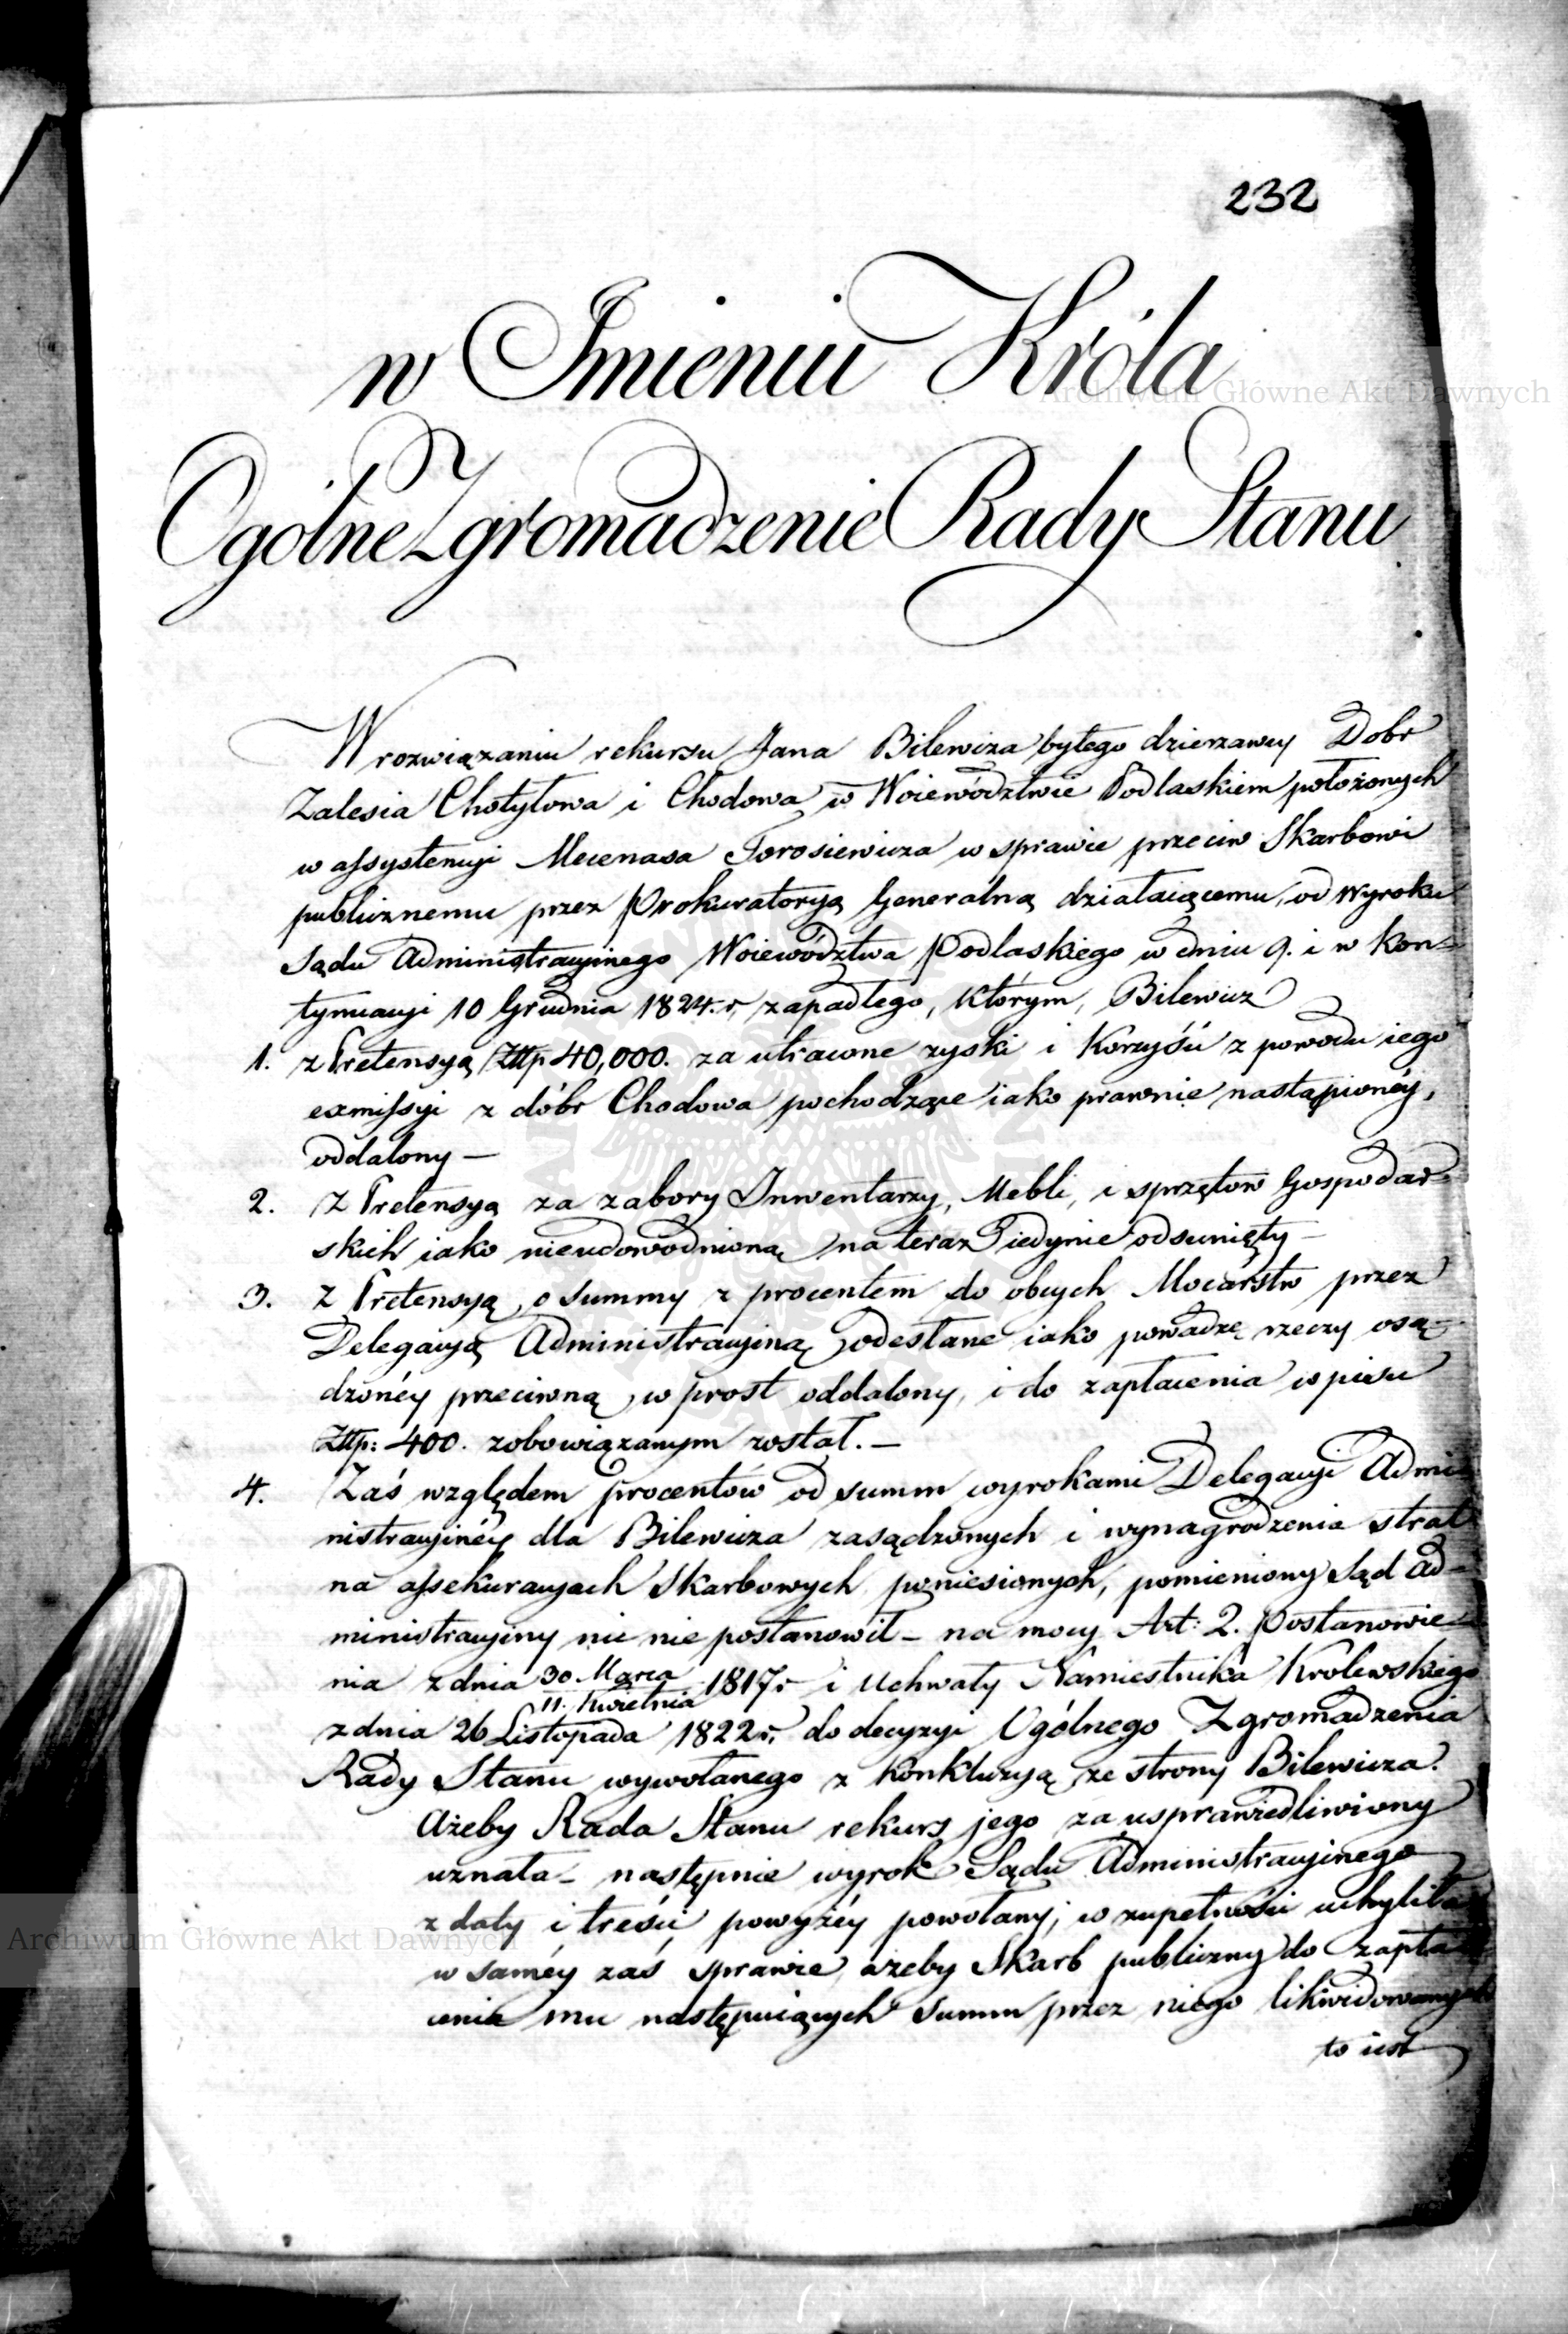 232
w Imieniu Króla
Ogólne Zgromadzenie Rady Stanu
W rozwiązaniu rekursu Jana Bilewicza byłego dzierzawcy Dobr
Zalesia Chotyłowa i Chodowa w Woiewództwie Podlaskiem położonych
w assystencyi Mecenasa Torosiewicza w sprawie przeciw Skarbowi
publicznemu przez Prokuratoryą Generalną działaiącemu, od Wyroku
Sądu Administracyinego Woiewództwa Podlaskiego w dniu 9. i w kon-
tynuacyi 10 Grudnia 1824. r. zapadłego, którym, Bilewicz
1. z Pretensyą Złłp 40,000. za utracone zyski i Korzyści z powodu iego
exmissyi z dóbr Chodowa pochodzące iako prawnie nastąpionéy,
oddalony —
2. z Pretensyą za zabory Inwentarzy, Mebli, i sprzętow Gospodar-
skich iako nieudowodnioną na teraz iedynie odsunięty —
3. z Pretensyą o summy z procentem do obcych Mocarstw przez
Delegacyą Administracyiną odesłane iako powadze rzeczy osą-
dzonéy przeciwną w prost oddalony, i do zapłacenia wpisu
Złłp: 400. zobowiązanym został. —
4. Zaś względem procentów od summ wyrokami Delegacyi Admi-
nistracyinéy dla Bilewicza zasądzonych i wynagrodzenia strat
na assekuracyach Skarbowych poniesionych, pomieniony Sąd Ad-
ministracyiny nic nie postanowił — na mocy Art: 2. Postanowie-
nia z dnia 30. Marca 1817 r i Uchwały Namiestnika Królewskiego
11. Kwietnia
z dnia 26 Listopada 1822 r. do decyzyi Ogólnego Zgromadzenia
Rady Stanu wywołanego z Konkluzyą ze strony Bilewicza.
Ażeby Rada Stanu rekurs jego za usprawiedliwiony
uznała — następnie wyrok Sądu Administracyinego
z daty i treści powyżéy powołany, w zupełności uchyliła
w saméy zaś sprawie ażeby Skarb publiczny do zapła-
cenia mu następuiących summ przez niego likwidowanych
to iest
Archiwum Główne Akt Dawnych
Archiwum Główne Akt Dawnych